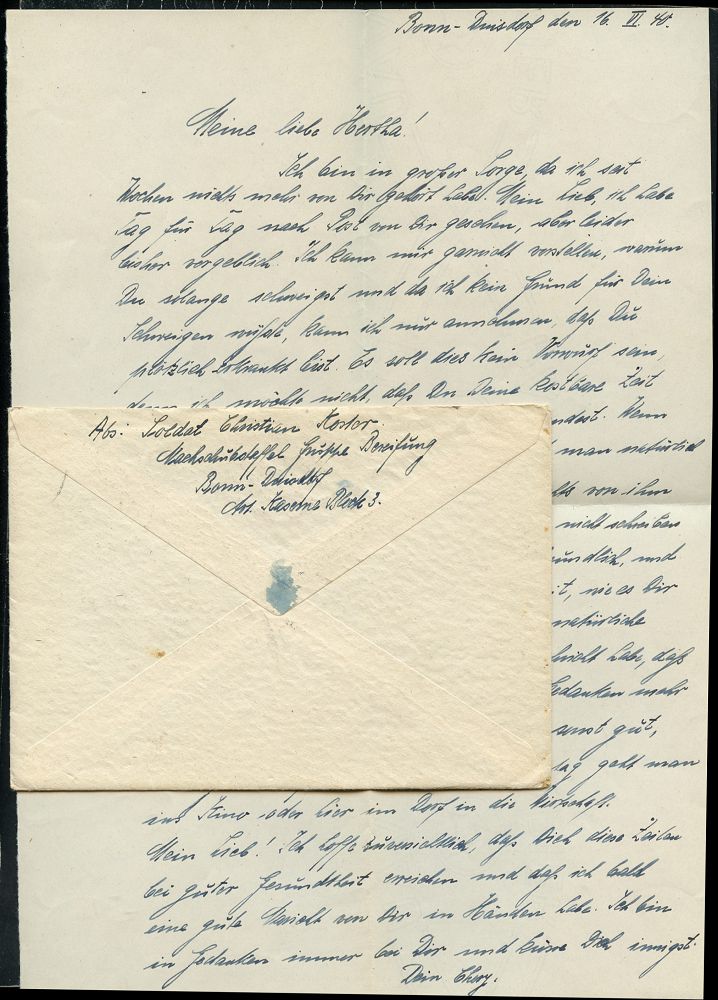 Bonn-Duisdorf den 16. VI. 40.
Meine liebe Hertha!
Ich bin in großer Sorge, da ich seit
Wochen nichts mehr von Dir gehört habe. Mein Lieb, ich habe
Tag für Tag nach Post von Dir gesehen, aber leider
bisher vergeblich. Ich kann mir garnicht vorstellen, warum
Du solange schweigst und da ich kein Grund für Dein
Schweigen wüßte, kann ich nur annehmen, daß Du
plötzlich erkrankt bist. Es soll dies kein Vorwurf sein,
denn ich möchte nicht, daß Du Deine kostbare Zeit
Abs: Soldat Christian
Nachschubstaffel Gruppe Bereifung
Bonn-Duisdorf
Art. Kaserne Block 3.
ndest. Wenn
man natürlich
hts von ihm
nicht schreiben
ündlich, und
it, wie es Dir
natürliche
habe, daß
Gedanken mehr
sonst gut,
tag geht man
ins Kino oder hier im Dorf in die Wirtschaft.
Mein Lieb! Ich hoffe zuversichtlich, daß Dich diese Zeilen
bei guter Gesundheit erreichen und daß ich bald
eine gute Nachricht von Dir in Händen habe. Ich bin
in Gedanken immer bei Dir und küsse Dich innigst.
Dein